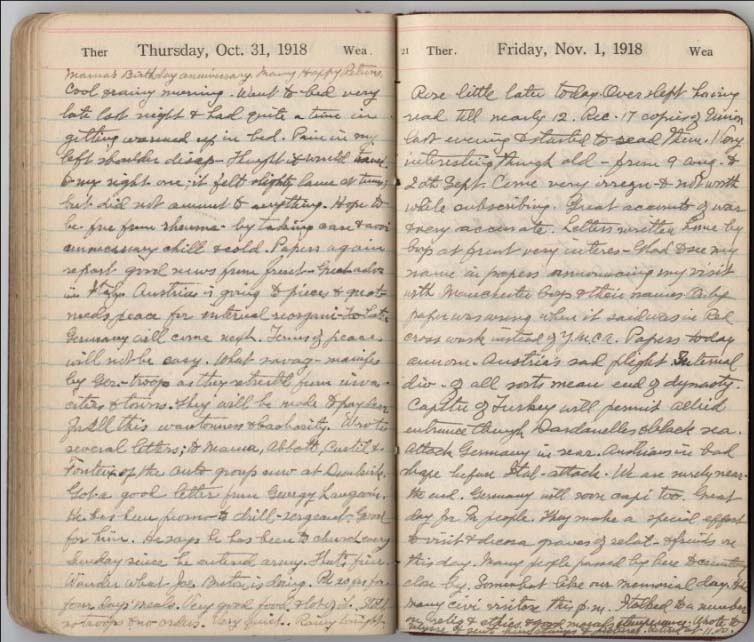 Ther Thursday, Oct. 31, 1918 Wea.
Mama's Birthday anniversary. Many Happy Returns.
Cool rainy morning. Went to bed very
late last night & had quite a time in
getting warmed up in bed. Pain in my
left shoulder disap- Thought it would
to my right one; it felt slightly lame at times
but did not amount to anything. Hope to
be free from rheuma- by taking care & avoi
unnecessary chill & cold. Papers again
report good news from front- Great
in Italy. Austria is going to pieces &
needs peace for internal reorgani-
Germany will come next. Terms of peace
will not be easy. What ravag-
by Ger- troops as they retreat from
cities & towns. They will be made to pay
for all this wantonness & barbarity. Wrote
several letters; to Mama, Abbott, &
of the auto group now at Dunkirk.
Got a good letter from Georgy Langevin.
He has been promo- to drill-sergeant. Good
for him. He says he has been to church every
Sunday since he entered army. That's fine.
Wonder what Joe is doing.
four days meals. Very good food & lots of it. Still
no troops & no orders. Very quiet. Rainy tonight.
21 Ther. Friday, Nov. 1, 1918 Wea
Rose little later today. Overslept having
read till nearly 12. Rec. 17 copies of Union
last evening & started to read them. Very
interesting though old - from 9 Aug. to
20th Sept. Come very irregu- & not worth
while subscribing. Great accounts of war
& very accurate. Letters written home by
boys at front very interes- Glad to see my
name in papers announcing my visit
with Manchester boys & their names.
paper was wrong when it said was in Red
cross work instead of Y.M.C.A. Papers today
announ- Austria's sad plight. Internal
div- of all sorts mean end of dynasty.
Capitu- of Turkey will permit allied
entrance through Dardanelles & black sea.
Attack Germany in rear. Austrians in bad
shape before Ital- attack. We are surely near
the end. Germany will soon capi- too. Great
day for Fr people. They make a special effort
to visit & decora graves of relat- & friends on
this day. Many people passed by here to cemetery
close by. Somewhat like our memorial day.
many civi- visitors this p.m. Talked to a number
on relig & ethics, & good morals & temperance. Wrote to